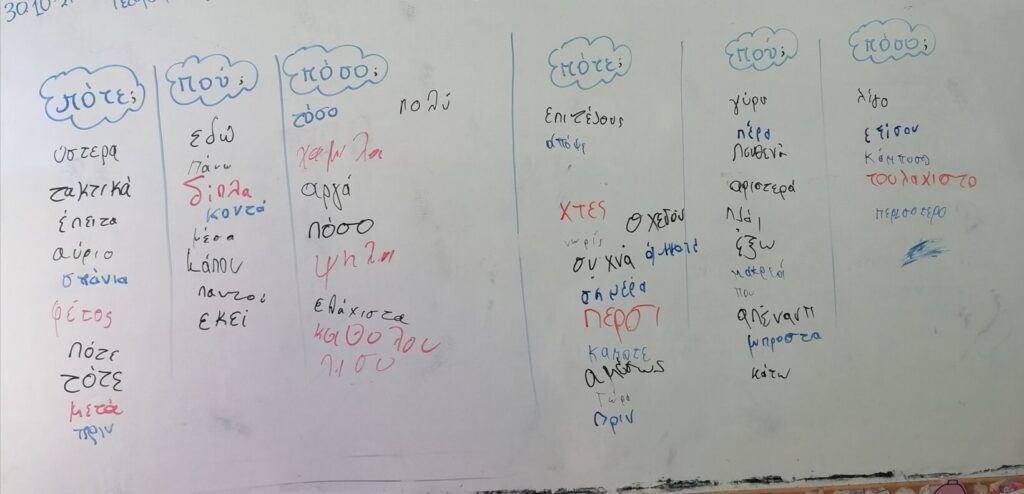 30.10
πότε;
ύστερα
τακτικά
έπειτα
αύριο
σπάνια
φέτος
πότε
τότε
μετά
πριν
πού;
εδώ
πάνω
δίπλα
κοντά
μέσα
κάπου
παντού
εκεί
πόσο;
τόσο πολύ
χαμηλα
αργά
πόσο
ψηλα
ελάχιστα
καθολου
πότε;
επιτέλους
απόψε
χτες
σχεδόν
νωρίς
συχνά
σήμερα
πέρσι
καποτε
αμέσως
τώρα
πριν
πού;
γύρω
πέρα
πουθενά
αριστερά
έξω
μακριά
που
απέναντι
μπροστα
κάτω
πόσο;
λίγο
εξίσου
κάμποσο
τουλαχιστο
περισσοτερο